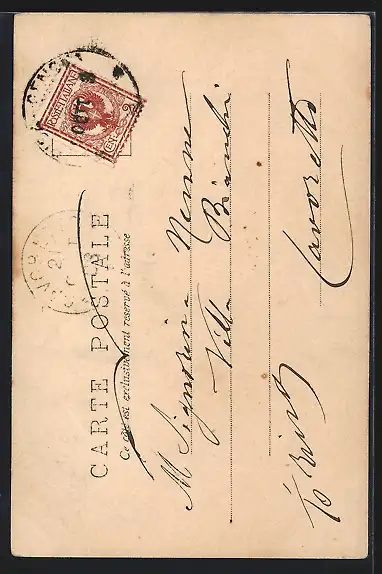 GENOVA
POSTE ITALIANE
CENT. 2
CARTE POSTALE
Ce côté est exclusivement réservé à l'adresse
M Signorina
Villa Bianchi
Cavoretto
Torino